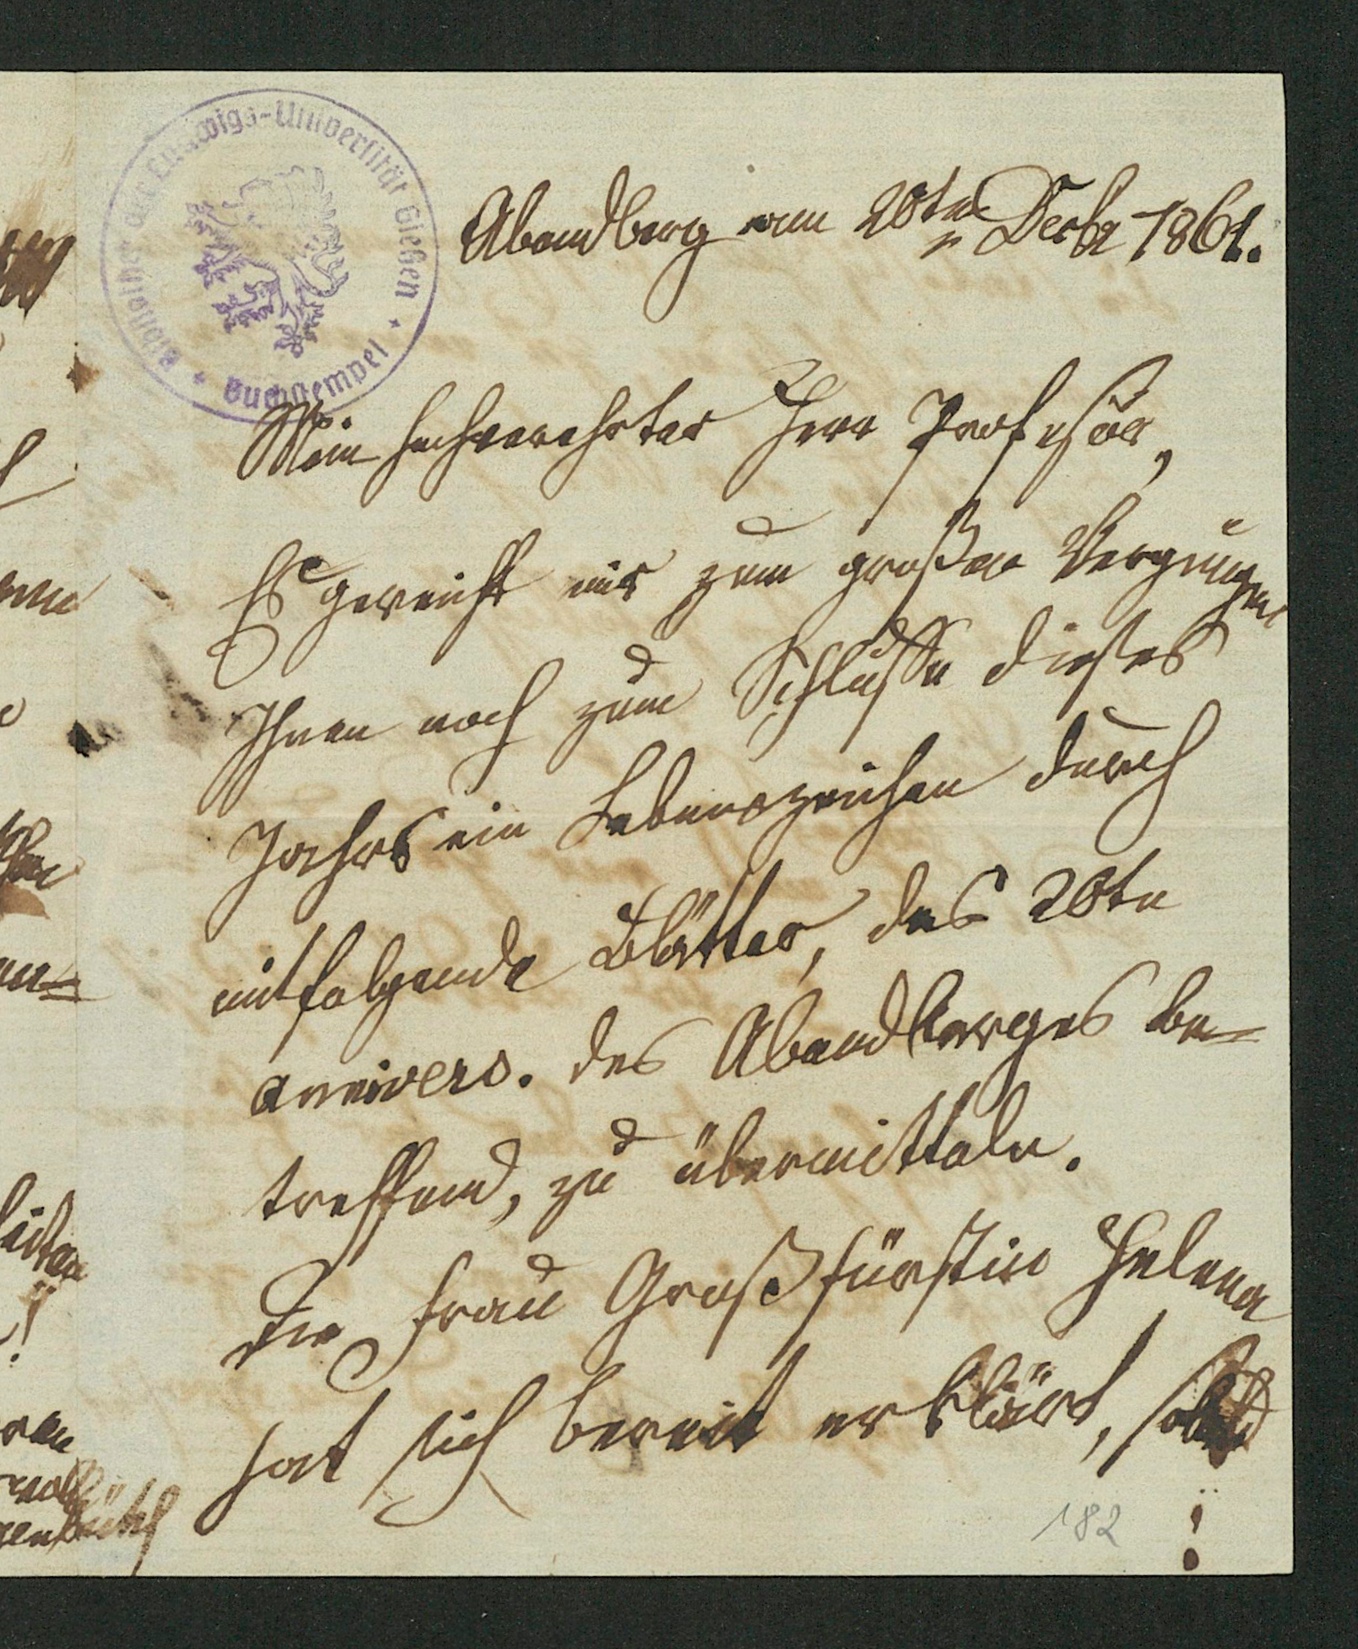 Bibliothek der Ludwigs-Universität Gießen
* Buchstempel *
Abendberg am 20ten Decbr 1861.
Mein hochverehrter Herr Professor,
Es gereicht mir zum großen Vergnügen
Ihnen noch zum Schlusse dieses
Jahres ein Lebenszeichen durch
mitfolgende Blätter, das 20te
annivers. des Abendberges be=
treffend, zu übermitteln.
Die Frau Großfürstin Helena
hat sich bereit erklärt, sobald
182